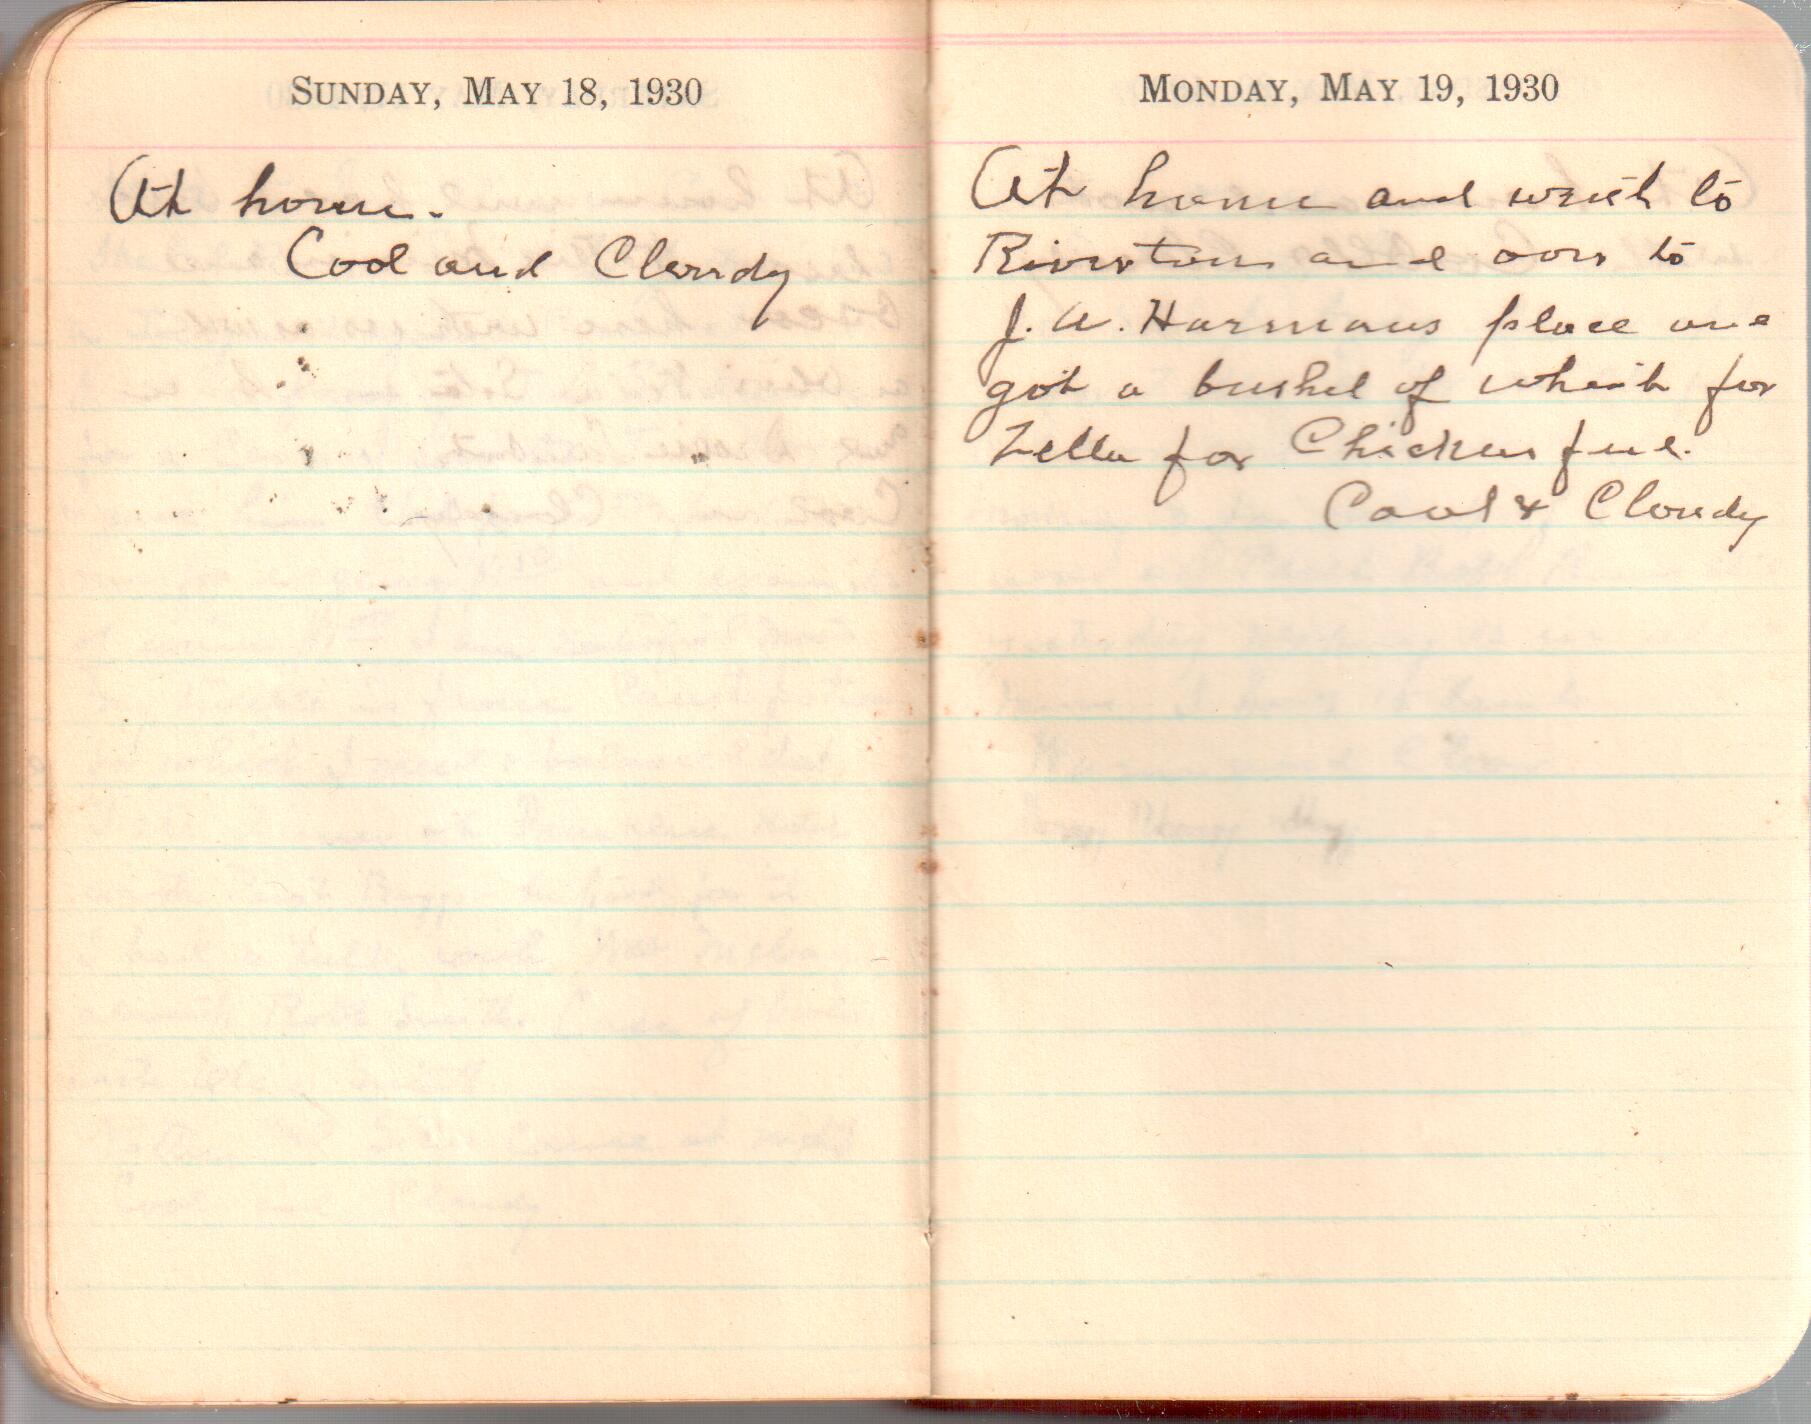 SUNDAY, MAY 18, 1930
At home.
Cool and Cloudy
MONDAY, MAY 19, 1930
At home and went to
Riverton and over to
J. W. Harmans place and
got a bushel of wheat for
Zella for Chicken feed.
Cool & Cloudy